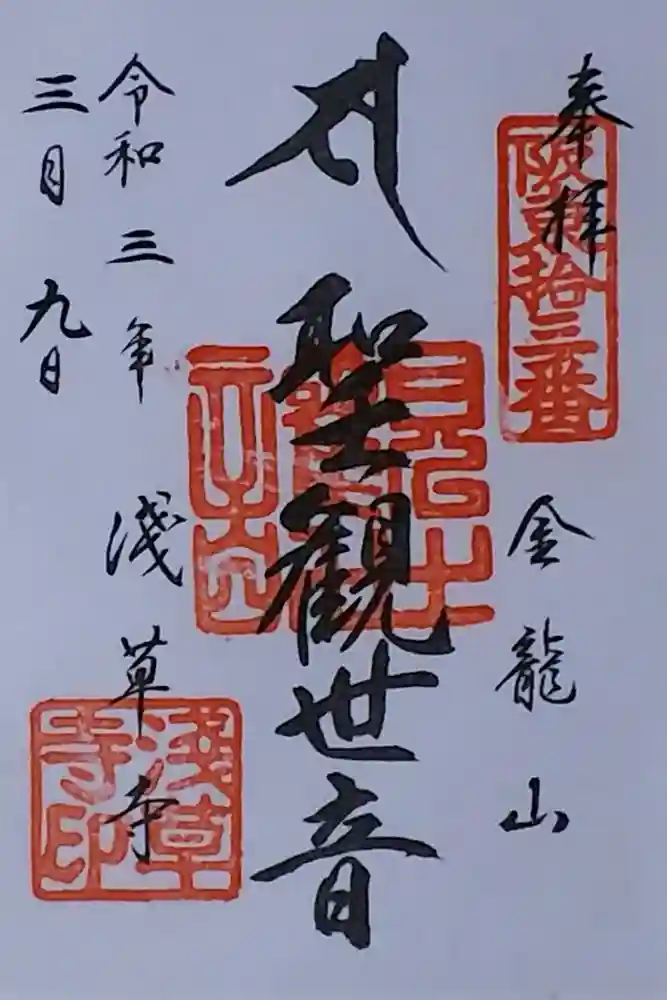 奉拝
阪東拾三番
金龍山
聖観世音
令和三年
三月九日
浅草寺
浅草
寺印